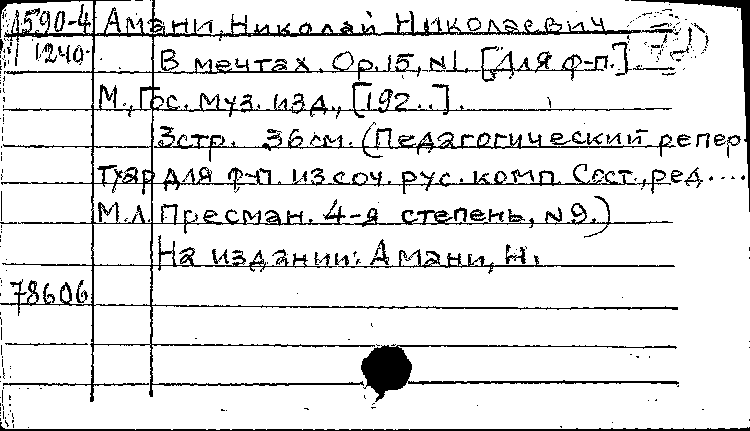 А590-4 Амани, Николай Николаевич
1240 В мечтах. Ор.15, №1. [Для ф-п.]
М., Гос. муз. изд., [192..].
3стр. 36см. (Педагогический репер-
туар для ф-п. из соч. рус. комп. Сост., ред....
М.Л. Пресман. 4-я степень, №9.)
На издании: Амани, Н.
78606